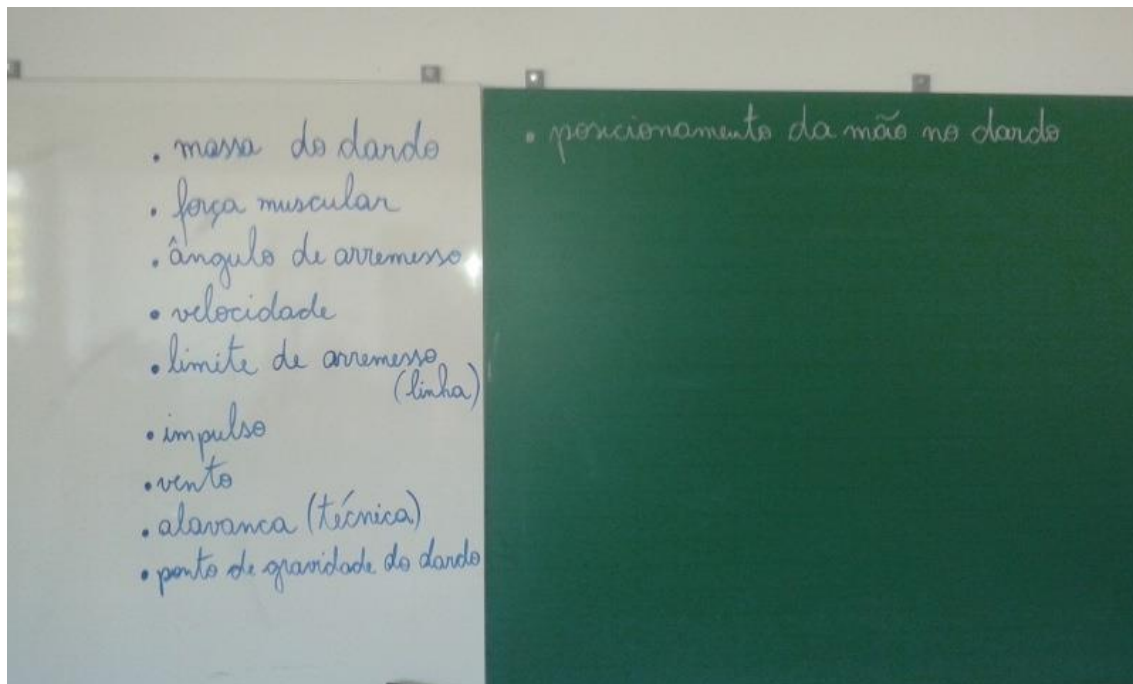 . massa do dardo
. força muscular
. ângulo de arremesso
• velocidade
• limite de arremesso
(linha)
• impulso
• vento
. alavanca (técnica)
• ponto de gravidade do dardo
• posicionamento da mão no dardo